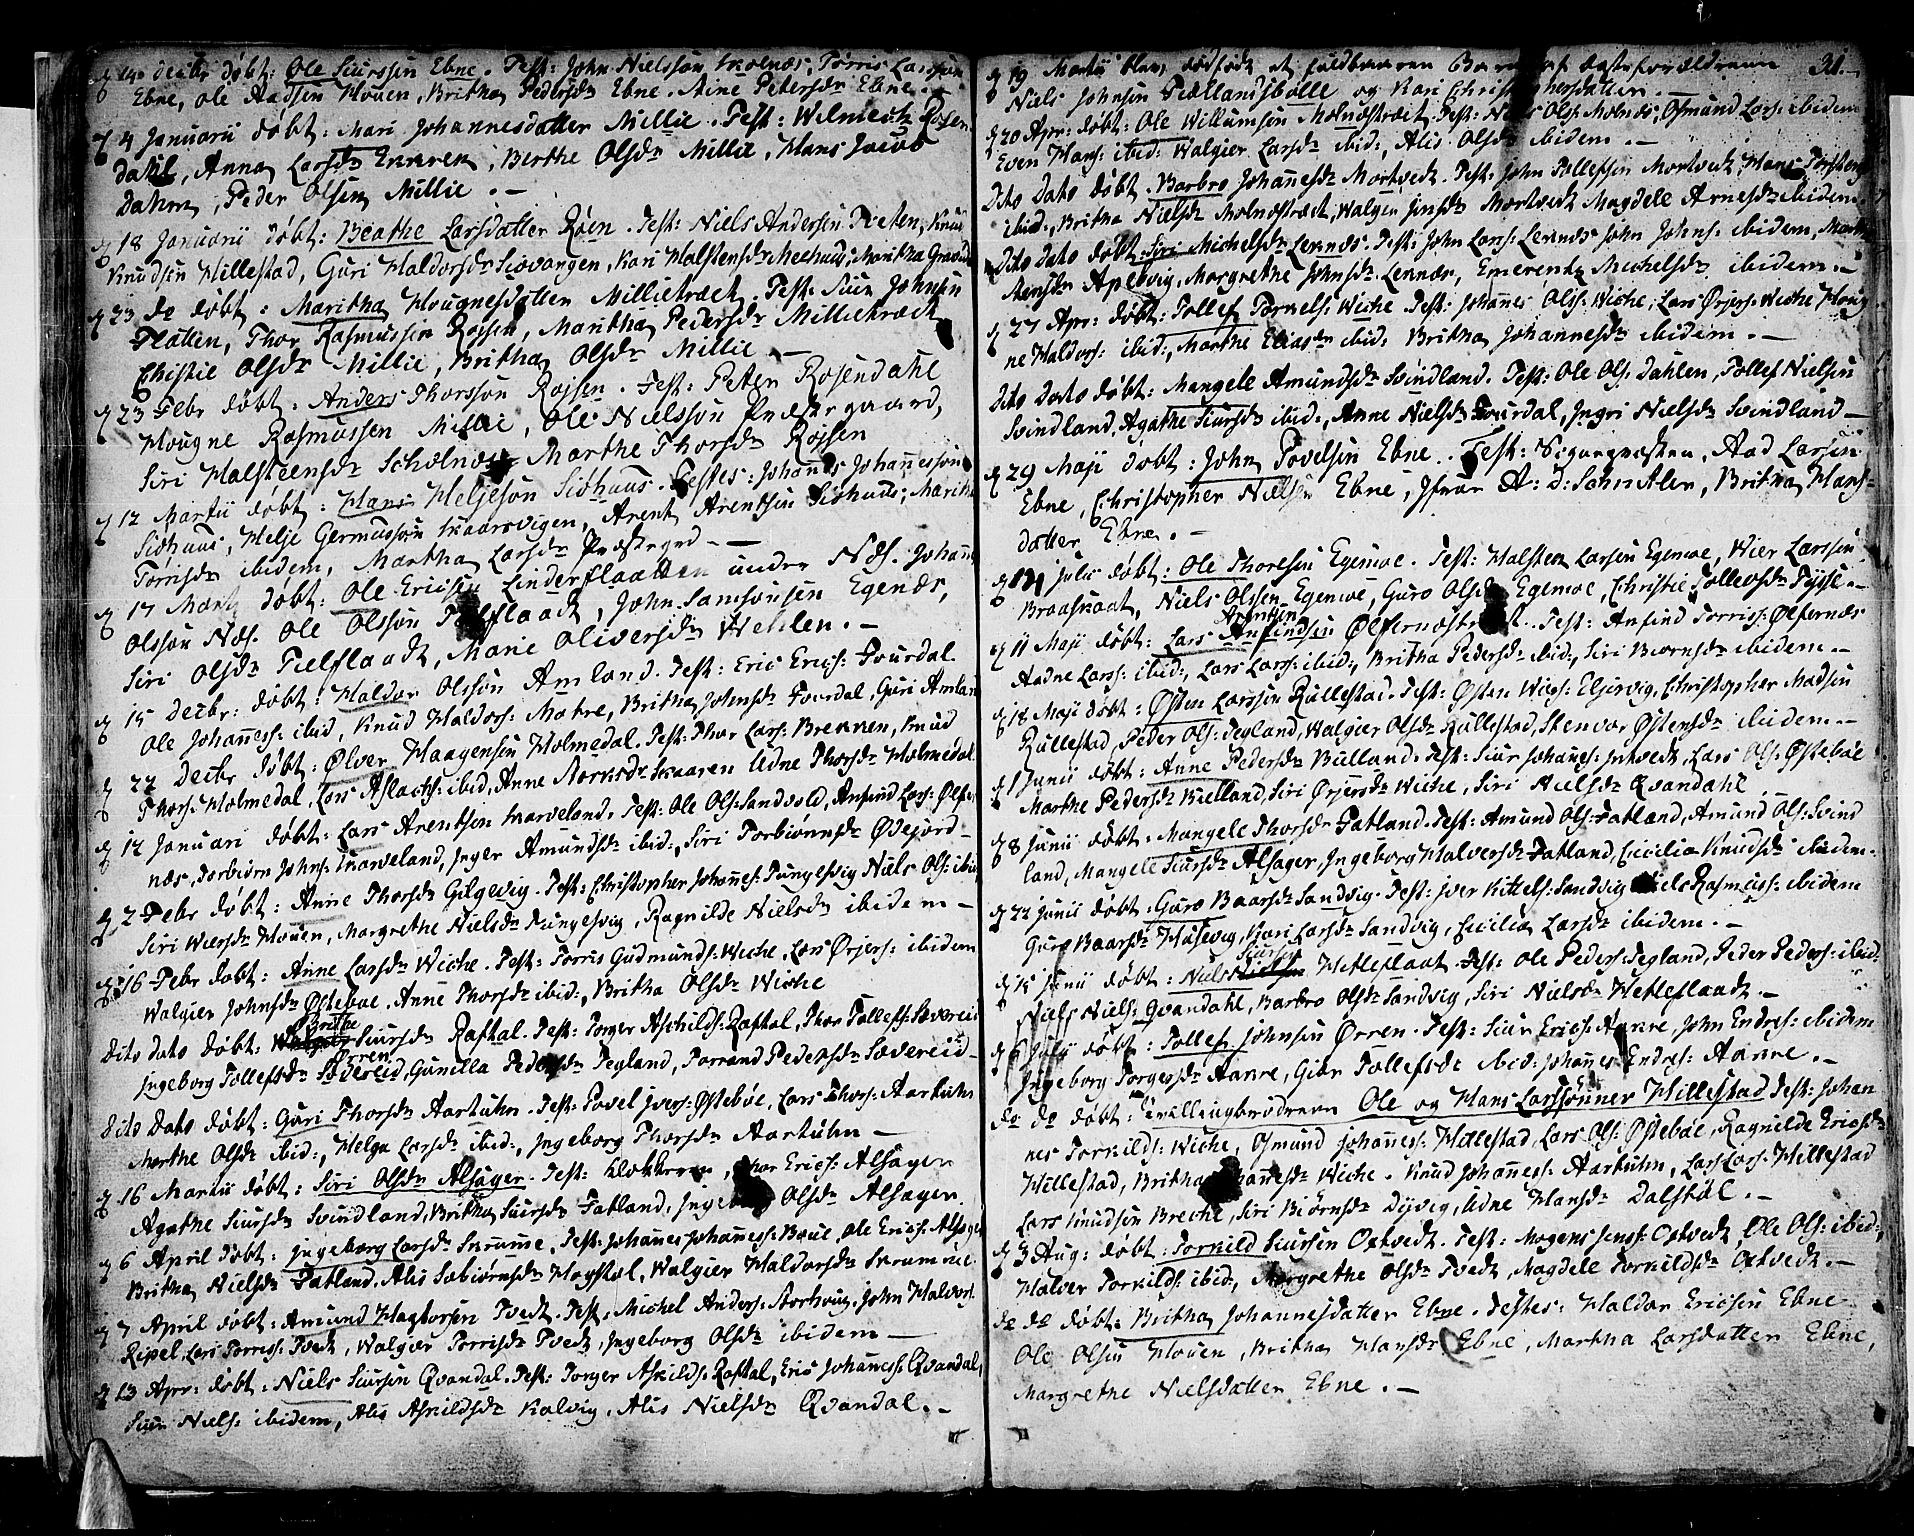 14 decbr døbt: Ole Siurssøn Ebne. Test: John Nielssøn Skolnæs, Torris Larssøn
Ebne, Ole Aadsen Houen, Britha Pedersdr Ebne. Aine Petersdr Ebne.
4 Januarii døbt: Mari Johannesdatter Millie. Test: Welnieutz Rosen
dahl, Anna Larsdr Ennren, Berthe Olsdr Millie, Hans Jacob
Dahm, Peder Olsen Millie. -
18 Januarii døbt: Beathe Larsdatter Røen. Test: Niels Andersen Tveten, Knud
Knudsen Millestad, Guri Haldorsdr Siovangen, Kari Halstensdr Meehuus, Maritha Gravdal
23 do døbt: Maritha Hougnesdatter Millietræet. Test: Siur Johnsen
Flatten, Thor Rasmussen Røjsen, Maritha Pedersdr Millietræet
Christie Olsdr Millie, Britha Olsdr Millie -
23 Febr døbt: Anders Thorssøn Rojsen. Test: Peter Rosendahl
Hougne Rasmussen Millie, Ole Nielssøn Præstegaard,
Siri Halsteensdr Scholnæs Marthe Thorsdr Rojsen
12 Martii døbt: Hans Heljesøn Sidhuus. Testes: Johanes Johanessøn
Sidhuus, Helje Germussøn Skaarsvigen, Arent Arentsen Sidhuus, Maritha
Torrisdr ibidem, Martha Larsdr Præstegrd -
17 Marty døbt: Ole Ericsen Linderflaatten under Næs. Johann
Olssøn Næs. Ole Olssøn Tielflaadt, John Samsonsen Egenæs,
Siri Olsdr Tielflaadt, Marie Oliversdr Wehlen. -
15 Decbr: døbt: Haldor Olssøn Amland. Test: Eric Erics: Fourdal
Ole Johaness: ibid, Knud Haldors: Matre, Britha Johnsdr Fourdal, Guri Amland
22 Decbr døbt: Ølver Haagensen Holmedal. Test: Thor Lars: Brekken, Knud
Thors: Holmedal, Lars Aslachs: ibid, Anne Storksdr Skaaren Udne Thorsdr Holmedal
12 Januari døbt: Lars Arentsen Skarveland. Test: Ole Ols: Sandvold, Anfind Lars: Ølfer
næs, Torbiørn Johns: Skarveland, Inger Amundsdr ibid:, Siri Torbiørnsdr Ødejord -
2 Febr døbt: Anne Thorsdr Gilgevig. Test: Christopher Johanes: Tungesvig Niels Ols: ibid
Siri Wiersdr Houen, Margrethe Nielsdr Tungesvig, Ragnilde Nielsdr ibidem -
16 Febr døbt: Anne Larsdr Wiche. Test: Torris Gudmunds: Wiche, Lars Ørjers: ibidem
Walgier Johnsdr Østebøe. Anne Thorsdr ibid:, Britha Olsdr Wiche
Britha
Dito Dato døbt: Walgier Siursdr Raftal. Test: Torger Aschilds: Raftal, Thor Tollefs: Sævereid
Ørren
Ingeborg Tollefsdr Sævereid, Gunilla Pedersdr Tegland, Torrand Pedersdr Sævereid -
Dito Dato døbt: Guri Thorsdr Aartuhn. Test: Povel Ivers: Østebøe, Lars Thors: Aartuhn
Marthe Olsdr ibid:, Helga Larsdr ibid:, Ingeborg Thorsdr Aartuhn -
16 Martii døbt: Siri Olsdr Alsager. Test: Klokkeren, Thor Erics: Alsager
Agathe Siursdr Svindland, Britha Siursdr Fatland, Ingeborg Olsdr Alsager
6 April døbt: Ingeborg Larsdr Skrumme, Test: Johanes Johaness: Brue, Ole Erics: Alsager
Britha Nielsdr Fatland. Alis Sæbiørnsdr Hogstøl, Walgier Haldorsdr Skrumme.
7 April døbt: Amund Hagtorsen Tvedt. Test. Michel Anders: Storhoug, John Halvors
Ripel, Lars Torres: Tvedt, Walgier Torrisdr Tvedt, Ingeborg Olsdr ibidem -
13 Apr: døbt: Niels Siursen Qvandal. Test: Torger Askilds: Raftal, Eric Johaness: Qvandal,
Siur Niels: ibidem, Alis Askildsdr Kalvig, Alis Nielsdr Qvandal. -
31.
19 Martii blev dødfødt et fuldbaaren Barn af ægteforældrene
Niels Johnsen Tiællandsbolle og Kari Christophersdatter.
20 Apr: døbt: Ole Willumsen Molnæstræet. Test: Niels Ols: Molnæs, Osmund Lars: ibidem
Even Hans: ibid: Walgier Larsdr ibid:, Alis Olsdr ibidem. -
Dito Dato døbt. Barbro Johanesdr Mortvedt. Test: John Tollefsen Mortvedt, Hans Torstens:
ibid:, Britha Nielsdr Molnæstræet, Walgier Jensdr Mortvedt Magdele Arnesdr ibidem.
Dito Dato døbt: Siri Michelsdr Lennæs. Test: John Lars: Lennæs John Johns: ibidem, Martha
Mensdr Apelsvig, Margrethe Johnsdr Lennæs, Emerentz Michelsdr ibidem. -
27 Apr: døbt: Tollef Tørkels: Wiche. Test: Johanes Ols: Wiche, Lars Ørjers: Wiche Houg
ne Haldors: ibid:, Marthe Eliasdr ibid: Britha Johannesdr ibidem. -
Dito Dato døbt: Mangele Amundsdr Svindland. Test: Ole Ols: Dahlen, Tollef Nielsen
Svindland. Agathe Siursdr ibid:, Anne Nielsdr Fourdal, Ingri Nielsdr Svindland -
29 Maji døbt: John Povelsen Ebne. Test: Aad Larsen
Ebne, Christopher Nielsen Ebne, Ifvar A: d: Sahntler, Britha Hans-
datter Ebne. -
Julii døbt: Ole Thoresen Egemoe. Test: Halsten Larsen Egemoe, Wier Larssen
Braatnaat, Niels Olssen Egemoe, Guro Olsdr Egemoe, Christie Tollevsdr Tysse. -
Arentsen
11 Maji døbt: Lars Anfindsen Ølfernæstræet. Test: Anfind Torris: Ølfernæs
Aadne Lars: ibid:, Lars Lars: ibid:, Britha Pedersdr ibid:, Siri Biørnsdr ibidem. -
18 Maji døbt: Østen Larssen Rullestad. Test: Østen Wiers: Eljervig, Christopher Madsen
Rullestad, Peder Ols: Tegland, Walgier Olsdr Rullestad, Stenvor Østensdr ibidem. -
1 Junii døbt: Anne Pedersdr Bielland. Test: Siur Johanes: Intvedt, Lars Ols: Østebøe
Marthe Pedersdr Bielland, Siri Ørjersdr Wiche, Siri Nielsdr Qvandahl
8 Junii døbt: Mangele Thorsdr Fatland. Test: Amund Ols: Fatland, Amund Ols: Svind
land, Mangele Siursdr Alsager, Ingeborg Halversdr Fatland, Cicilia Knudsdr ibidem.
22 Junii døbt: Guro Baarsdr Sandvig. Test: Iver Kittels: Sandvig Niels Rasmuss: ibidem
Guro Baarsdr Husevig, Kari Larsdr Sandvig, Cicilia Larsdr ibidem. -
Siursen
15 Junii døbt: Niels Hetleflaat. Test: Ole Peders: Tegland, Peder Peders: ibid:
Niels Niels: Qvandahl, Barbro Olsdr Sandvig, Siri Nielsdr Hetleflaadt. -
6 Julii døbt: Tollef Johnsen Ørren. Test: Siur Erics: Aanre, John Endres: ibidem
Ingeborg Torgersdr Aanre, Giør Tollefsdr ibid: Johanes Endres: Aanre. -
do do døbt: tvillingbrødrene Ole og Hans Larssønner Hillestad Test: Johan
nes Torkilds: Wiche, Osmund Johaness: Hillestad, Lars Ols: Østebøe, Ragnilde Ericsdr
Hillestad, Britha Johannesdr Wiche. Knud Johaness: Aartuhn, Lars Lars: Hillestad
Lars Knudsen Breche, Siri Biørnsdr Dyvig, Udne Hansdr Dalstøl. -
3 Aug: døbt: Torkild Siursen Oxtvedt. Test: Mogens Jenss: Oxtvedt, Ole Ols: ibid:,
Halver Torkilds: ibid:, Margrethe Olsdr Tvedt, Magdele Torkildsdr Oxtvedt. -
do do døbt: Britha Johannesdatter Ebne. Testes: Haldor Ericsen Ebne
Ole Olsen Houen, Britha Hansdr Ebne, Martha Larsdatter Ebne,
Margrethe Nielsdatter Ebne. -